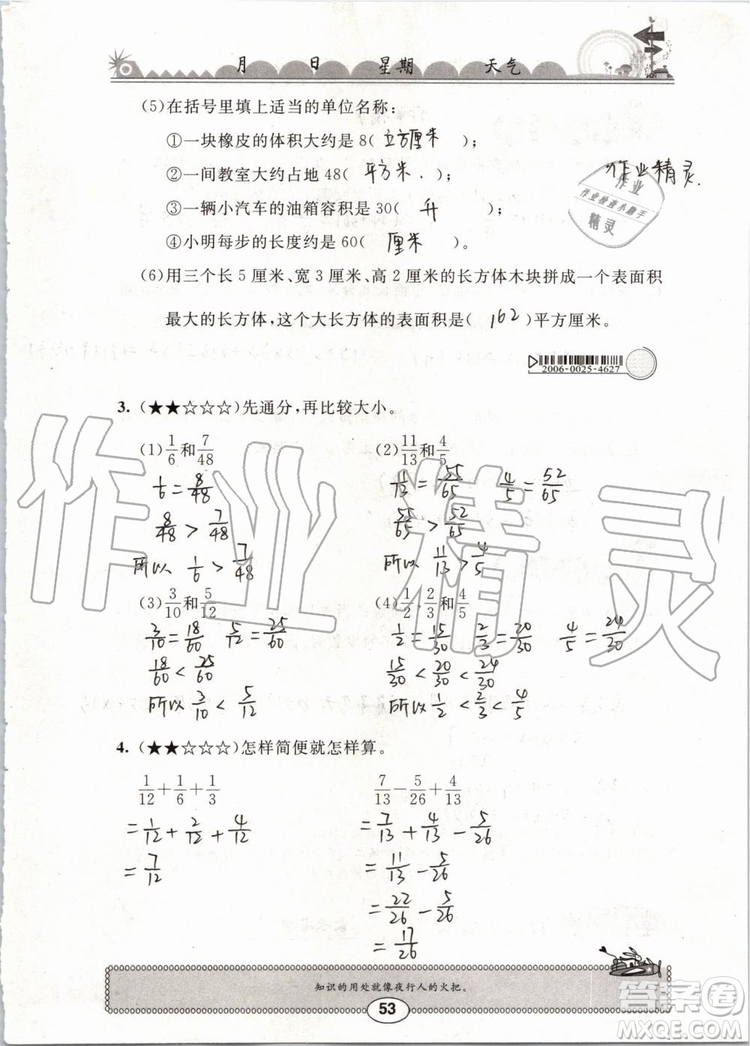 月 日 星期 天气
(5)在括号里填上适当的单位名称:
①一块橡皮的体积大约是8( 立方厘米 );
②一间教室大约占地48( 平方米 . );
作业精灵.
作业
作业快速小助手
精灵
③一辆小汽车的油箱容积是30( 升 );
④小明每步的长度约是60( 厘米 )。
(6)用三个长5厘米、宽3厘米、高2厘米的长方体木块拼成一个表面积
最大的长方体,这个大长方体的表面积是( 162 )平方厘米。
2006-0025-4627
3. (★★☆☆☆)先通分,再比较大小。
(1) 1/6 和 7/48 (2) 11/13 和 4/5
1/6 = 8/48 11/13 = 55/65 4/5 = 52/65
8/48 > 7/48 55/65 > 52/65
所以 1/6 > 7/48 所以 11/13 > 4/5
(3) 3/10 和 5/12 (4) 1/2、2/3 和 4/5
3/10 = 18/60 5/12 = 25/60 1/2 = 15/30 2/3 = 20/30 4/5 = 24/30
18/60 < 25/60 15/30 < 20/30 < 24/30
所以 3/10 < 5/12 所以 1/2 < 2/3 < 4/5
4. (★★☆☆☆)怎样简便就怎样算。
1/12 + 1/6 + 1/3 7/13 − 5/26 + 4/13
= 1/12 + 2/12 + 4/12 = 7/13 + 4/13 − 5/26
= 7/12 = 11/13 − 5/26
= 22/26 − 5/26
= 17/26
知识的用处就像夜行人的火把。
53
作业精灵
答案圈
MXQE.COM